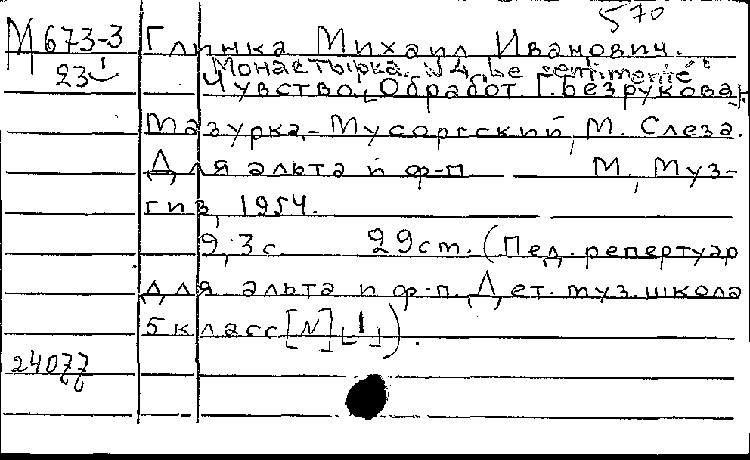 570
М 673-3 Глинка Михаил Иванович.
23 Монастырка. N 4. Le sentiment
Чувство. Обработ Г. Безрукова.
Мазурка.- Мусоргский, М. Слеза.
Для альта и ф-п М, Муз-
гиз, 1954.
9,3 с. 29 cm. (Пед. репертуар
для альта и ф-п. Дет. муз. школа
5 класс [N] [1]).
24077